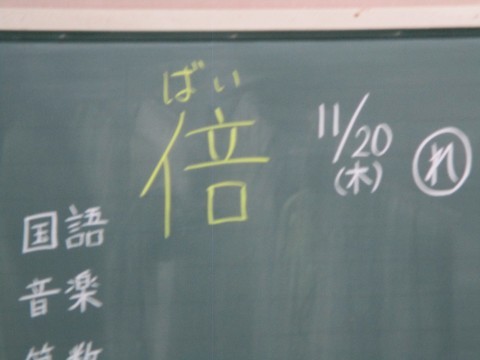 ばい
倍
11/20
(木)
れ
国語
音楽
算数